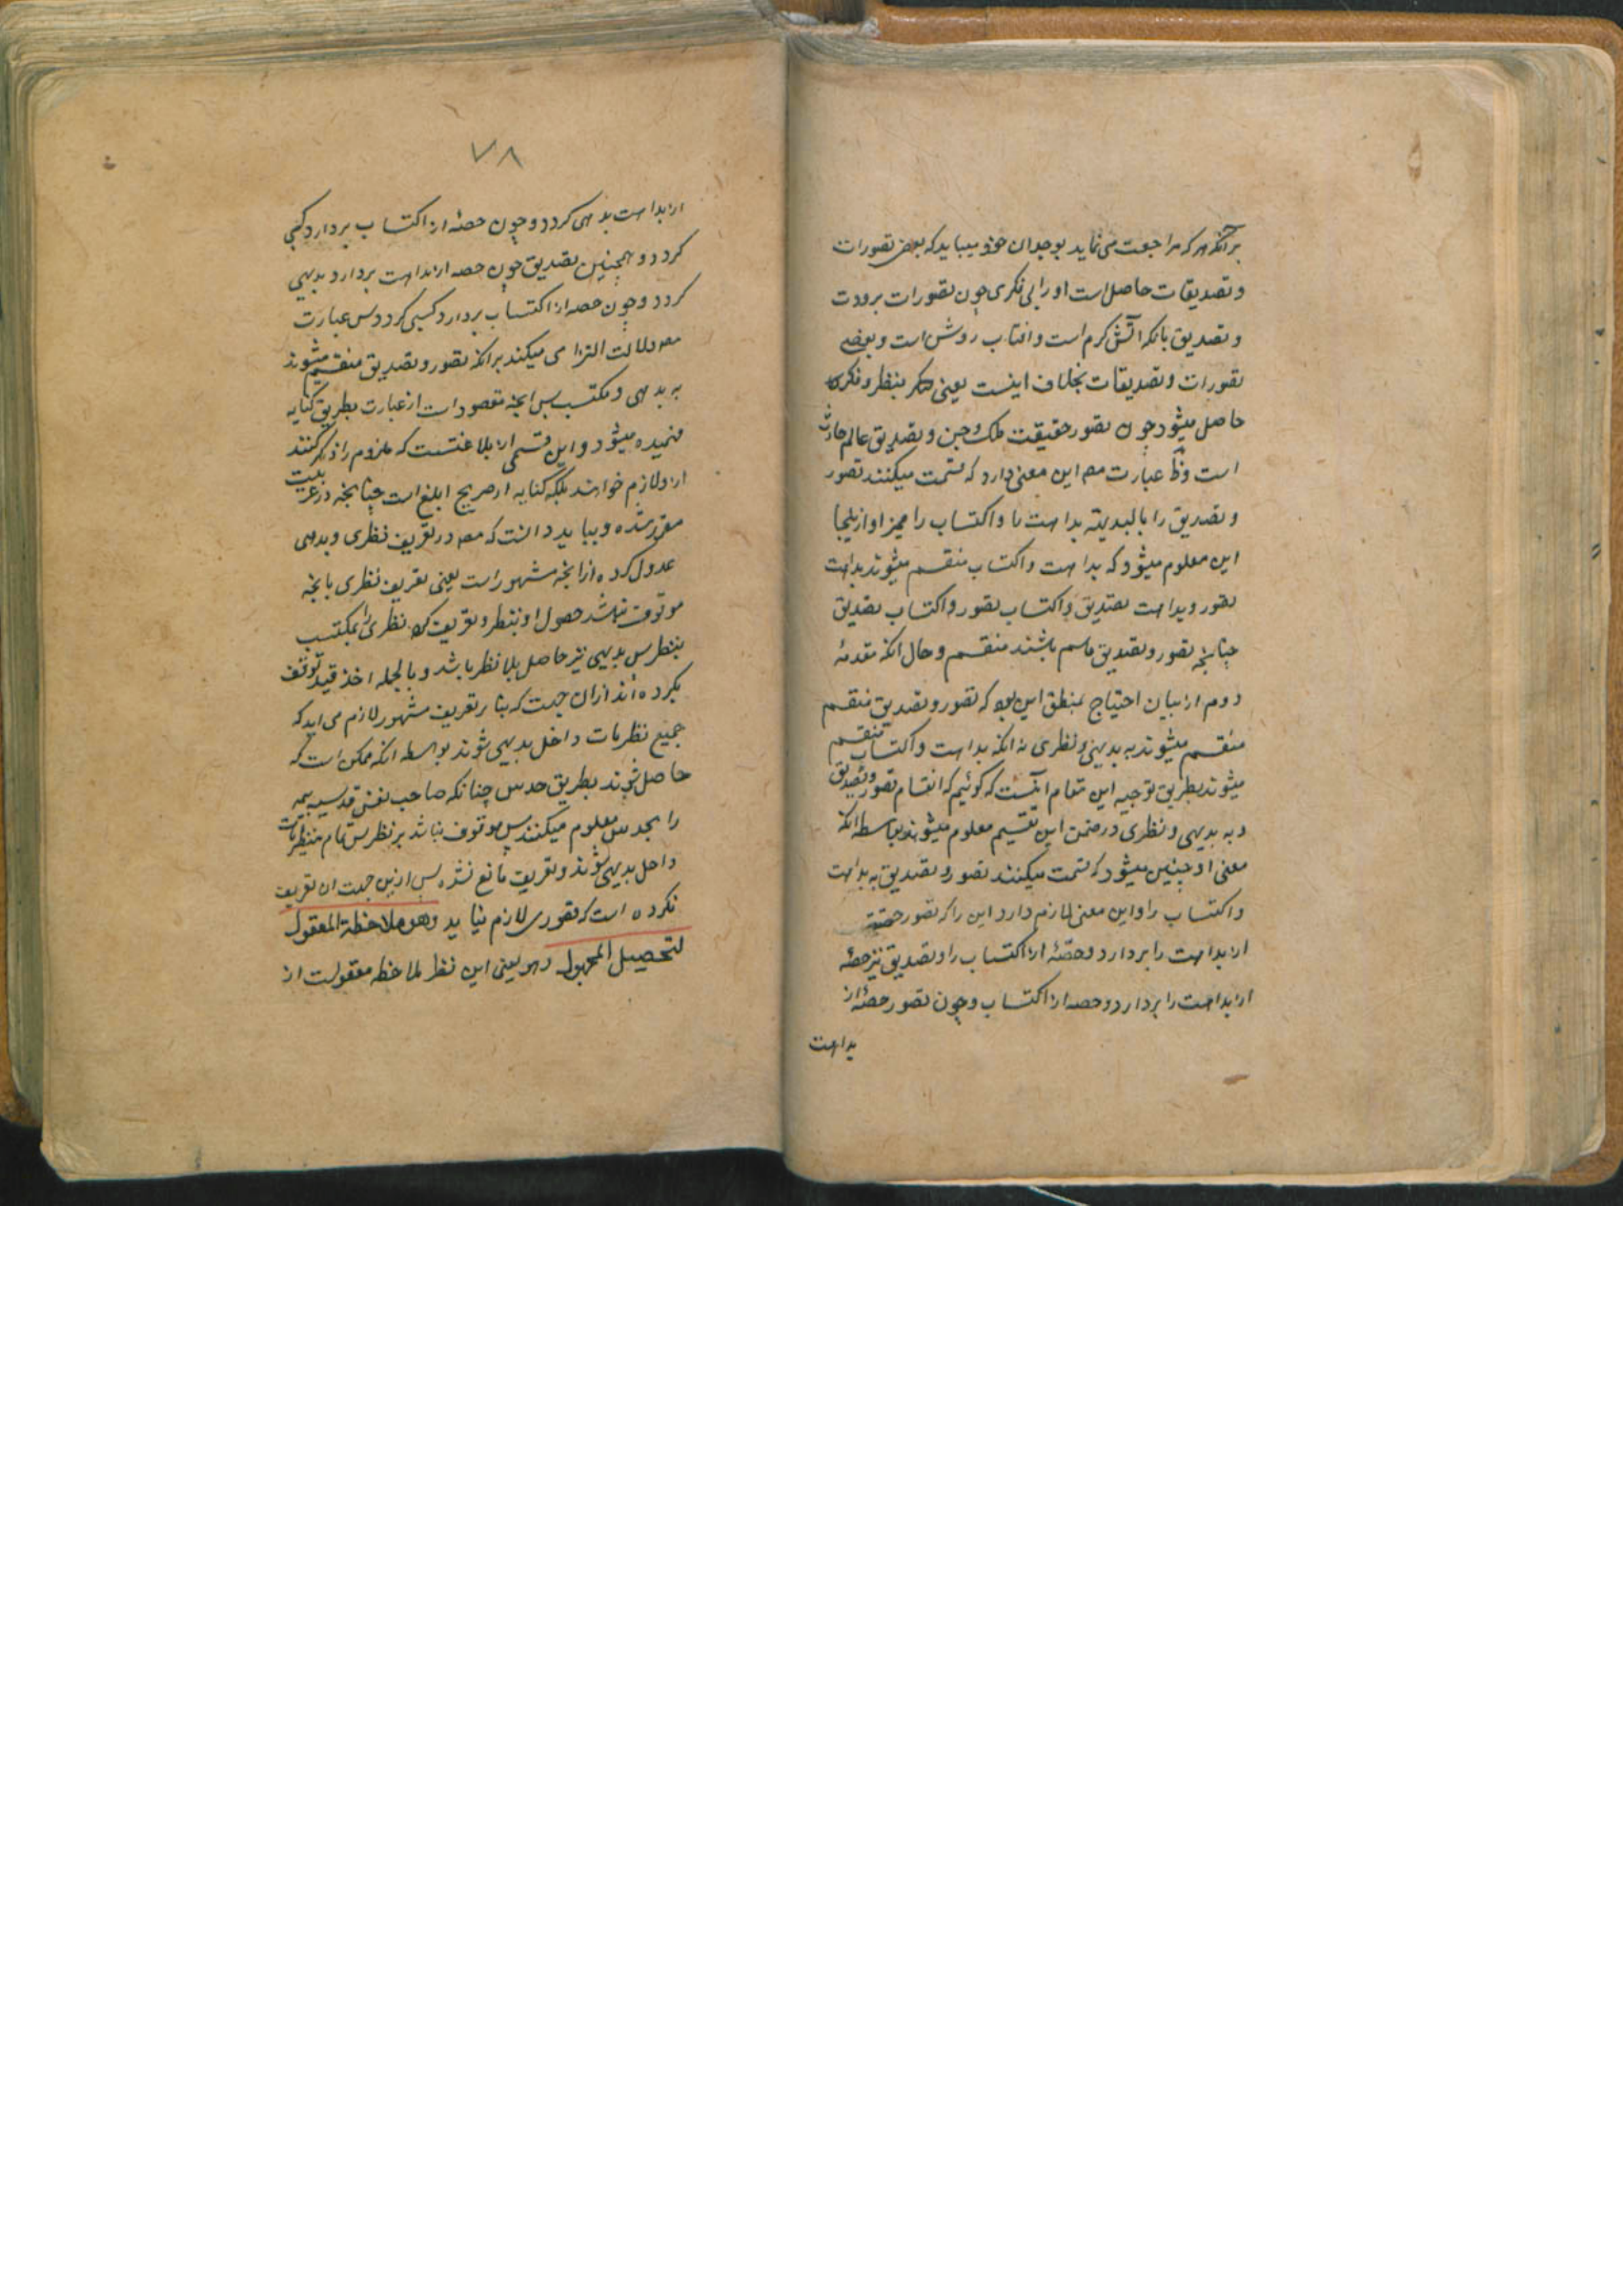 برآنکه هر که مراجعت می نماید بوجدان خود میباید که بعض تصورات
و تصدیقات حاصل است او را بی فکری چون تصورات برودت
و تصدیق بانکه آتش کرم است و افتاب روشن است و بعضی
تصورات و تصدیقات بخلاف اینست یعنی بنظر و فکر
حاصل میشود چون تصور حقیقت ملک و جن و تصدیق عالم حادث
است عبارت مصه این معنی دارد که قسمت میکنند تصور
و تصدیق را بالبدیهة بداهت با واکتساب را
این معلوم میشود که بداهت و اکتساب منقسم میشوند بداهت
تصور و بداهت تصدیق و اکتساب تصور و اکتساب تصدیق
چنانچه تصور و تصدیق قاسم باشند منقسم و حال انکه مقدمه
دوم از بیان احتیاج بمنطق این بود که تصور و تصدیق منقسم
منقسم میشوند به بدیهی و نظری نه انکه بداهت و اکتساب منقسم
میشوند بطریق توجیه این مقام انست که کوئیم که انقسام تصور و تصدیق
به بدیهی و نظری در ضمن این تقسیم معلوم میشوند بواسطه انکه
معنی او چنین میشود که قسمت میکنند تصور و تصدیق به بداهت
و اکتساب را و این معنی لازم دارد این را که تصور حصه
از بداهت را بردارد و حصّهٔ از اکتساب را و تصدیق نیز حصهٔ
از بداهت را بردارد و حصه از اکتساب و چون تصور حصهٔ از
بداهت
٧٨
از بداهت بدیهی کردد و چون حصهٔ از اکتساب بردارد کسبی
کردد و همچنین تصدیق چون حصه از بداهت بردارد بدیهی
کردد و چون حصه از اکتساب بردارد کسبی کردد پس عبارت
مصه دلالت التزامی میکند برانکه تصور و تصدیق منقسم میشوند
به بدیهی و مکتسب پس انچه مقصود است از عبارت بطریق کنایه
فهمیده میشود و این قسمی از بلاغتست که ملزوم را ذکر کنند
از و لازم خواهند بلکه کنایه از صریح ابلغ است چنانچه در عربیت
مقرر شده و بباید دانست که مصه در تعریف نظری و بدیهی
عدول کرده از انچه مشهور است یعنی تعریف نظری بانچه
موقوف باشد حصول او بنظر و تعریف کرد نظری را بمکتسب
بنظر پس بدیهی نیز حاصل بلا نظر باشد و بالجمله اخذ قید توقف
نکرده اند ازان جهت که بنا بر تعریف مشهور لازم می اید که
جمیع نظریات داخل بدیهی شوند بواسطه انکه ممکن است که
حاصل شوند بطریق حدس چنانکه صاحب نفس قدسیه همه
را بحدس معلوم میکنند پس موقوف نباشد بر نظر پس تمام نظریات
داخل بدیهی شوند و تعریف مانع نشد پس ازین جهت ان تعریف
نکرده است که قصوری لازم نیاید وهو ملاحظة المعقول
لتحصیل المجهول و هو یعنی این نظر ملاحظه معقولست از